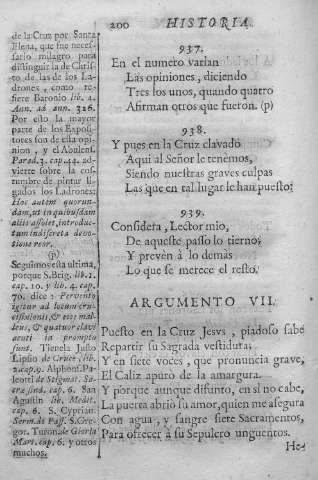 200 HISTORIA
de la Cruz por Santa
Elena, que fue neces-
sario milagro para
distinguir la de Chris-
to de las de los La-
drones, como re-
fiere Baronio lib. 4.
Ann. ad ann. 326.
Por esto la mayor
parte de los Exposi-
tores son de esta opi-
nion, y el Abulens.
Parad. 3. cap. 44. ad-
vierte sobre la cos-
tumbre de pintar li-
gados los Ladrones:
Hoc autem quorun-
dam, ut in quibusdam
aliis assolet, introduc-
tum indiscreta devo-
tione reor.
(p)
Seguimos esta ultima,
porque S. Brig. lib. 1.
cap. 10. y lib. 4. cap.
70. dice: Pervenit
igitur ad locum cru-
cifixionis, & ecce mal-
leus, & quatuor clavi
acuti in promptu
sunt. Tienela Justo
Lipsio de Cruce, lib.
2. cap. 9. Alphons. Pa-
leoti de Stigmat. Sa-
cræ sind. cap. 6. San
Agustin lib. Medit.
cap. 6. S. Cyprian.
Serm. de Pass. S. Gre-
gor. Turon. de Gloria
Mart. cap. 6. y otros
muchos.
937.
En el numero varian
Las opiniones, diciendo
Tres los unos, quando quatro
Afirman otros que fueron. (p)
938.
Y pues en la Cruz clavado
Aqui al Señor le tenemos,
Siendo nuestras graves culpas
Las que en tal lugar le han puesto:
939.
Considera, Lector mio,
De aqueste passo lo tierno;
Y prevèn à lo demàs
Lo que se merece el resto.
ARGUMENTO VII.
Puesto en la Cruz Jesvs, piadoso sabe
Repartir su Sagrada vestidura;
Y en siete voces, que pronuncia grave,
El Caliz apurò de la amargura.
Y porque aunque difunto, en sì no cabe,
La puerta abriò su amor, quien me asegura
Con agua, y sangre siete Sacramentos,
Para ofrecer à su Sepulcro unguentos.
Hec